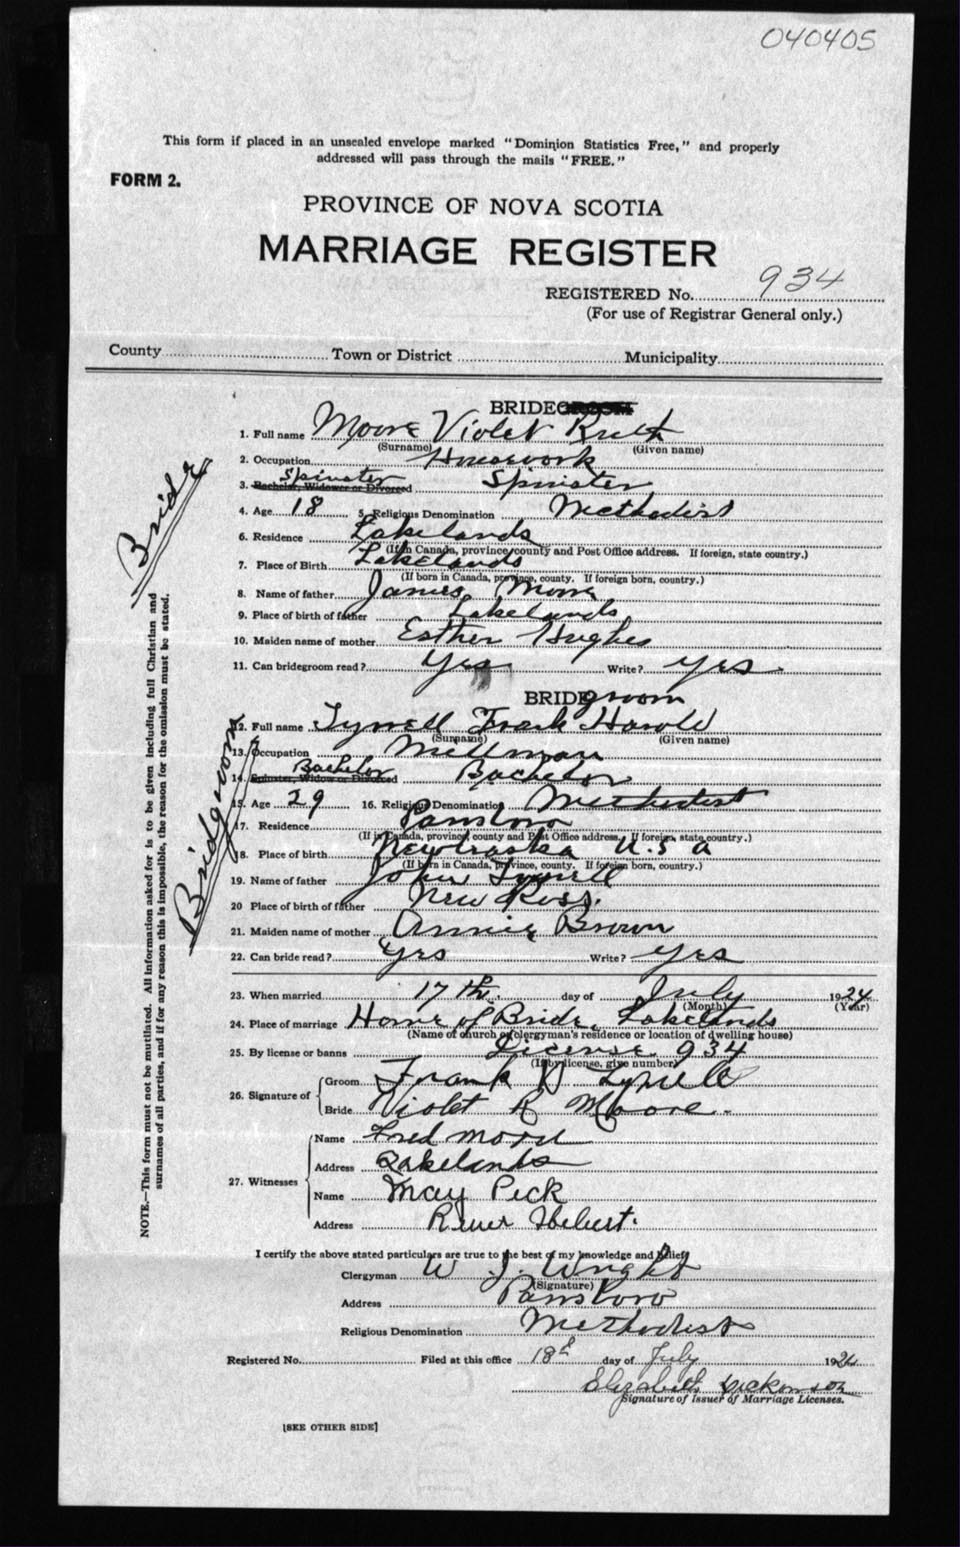 040405
This form if placed in an unsealed envelope marked "Dominion Statistics Free," and properly
addressed will pass through the mails "FREE."
FORM 2.
PROVINCE OF NOVA SCOTIA
MARRIAGE REGISTER
REGISTERED No. 934
(For use of Registrar General only.)
County Town or District Municipality
BRIDEGROOM
1. Full name Moore Violet Ruth
(Surname) (Given name)
2. Occupation Housework
Spinster
3. Bachelor, Widower or Divorced Spinster
4. Age 18 5. Religious Denomination Methodist
6. Residence Lakelands
(If in Canada, province, county and Post Office address. If foreign, state country.)
7. Place of Birth Lakelands
(If born in Canada, province, county. If foreign born, country.)
8. Name of father James Moore
9. Place of birth of father Lakelands
10. Maiden name of mother Esther Hughes
11. Can bridegroom read? Yes Write? Yes
BRIDEgroom
12. Full name Tyrrell Frank Harold
(Surname) (Given name)
13. Occupation Millman
Bachelor
14. Spinster, Widow or Divorced Bachelor
15. Age 29 16. Religious Denomination Methodist
17. Residence Parrsboro
(If in Canada, province, county and Post Office address. If foreign, state country.)
18. Place of birth Newbraska U.S.A
(If born in Canada, province, county. If foreign born, country.)
19. Name of father John Tyrrell
20 Place of birth of father New Ross.
21. Maiden name of mother Annie Brown
22. Can bride read? Yes Write? Yes
23. When married 17th. day of July 1924
(Month) (Year)
24. Place of marriage Home of Bride, Lakelands
(Name of church or clergyman's residence or location of dwelling house)
25. By license or banns License 934
(If by license, give number)
26. Signature of
Groom Frank Tyrrell
Bride Violet R Moore.
27. Witnesses
Name Fred Moore
Address Lakelands
Name May Peck
Address River Hebert.
I certify the above stated particulars are true to the best of my knowledge and belief
Clergyman W. J. Wright
(Signature)
Address Parrsboro
Religious Denomination Methodist
Registered No. Filed at this office 18th day of July 1924
Elizabeth Dickinson
Signature of Issuer of Marriage Licenses.
[SEE OTHER SIDE]
Bride
Bridgroom
NOTE.—This form must not be mutilated. All information asked for is to be given including full Christian and
surnames of all parties, and if for any reason this is impossible, the reason for the omission must be stated.